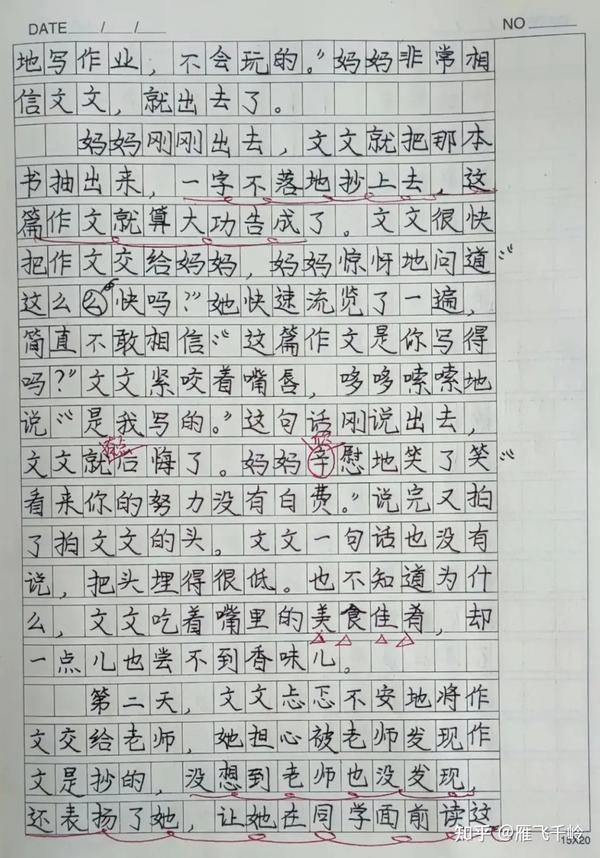 DATE / / / NO
地写作业，不会玩的。”妈妈非常相
信文文，就出去了。
妈妈刚刚出去，文文就把那本
书抽出来，一字不落地抄上去，这
篇作文就算大功告成了。文文很快
把作文交给妈妈，妈妈惊怀地问道：“
这么快吗?”她快速流览了一遍，
简直不敢相信：“这篇作文是你写得
吗?”文文紧咬着嘴唇，哆哆嗦嗦地
说：“是我写的。”这句话刚说出去，
有点 欣
文文就后悔了。妈妈辛慰地笑了笑：“
看来你的努力没有白费。”说完又拍
了拍文文的头。文文一句话也没有
说，把头埋得很低。也不知道为什
么，文文吃着嘴里的美食佳肴，却
一点儿也尝不到香味儿。
第二天，文文忐忑不安地将作
文交给老师，她担心被老师发现作
文是抄的，没想到老师也没发现，
还表扬了她，让她在同学面前读这
知乎 @雁飞千岭
15X20